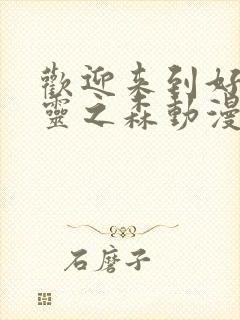 歡迎来到好
靈之森動漫
石磨子